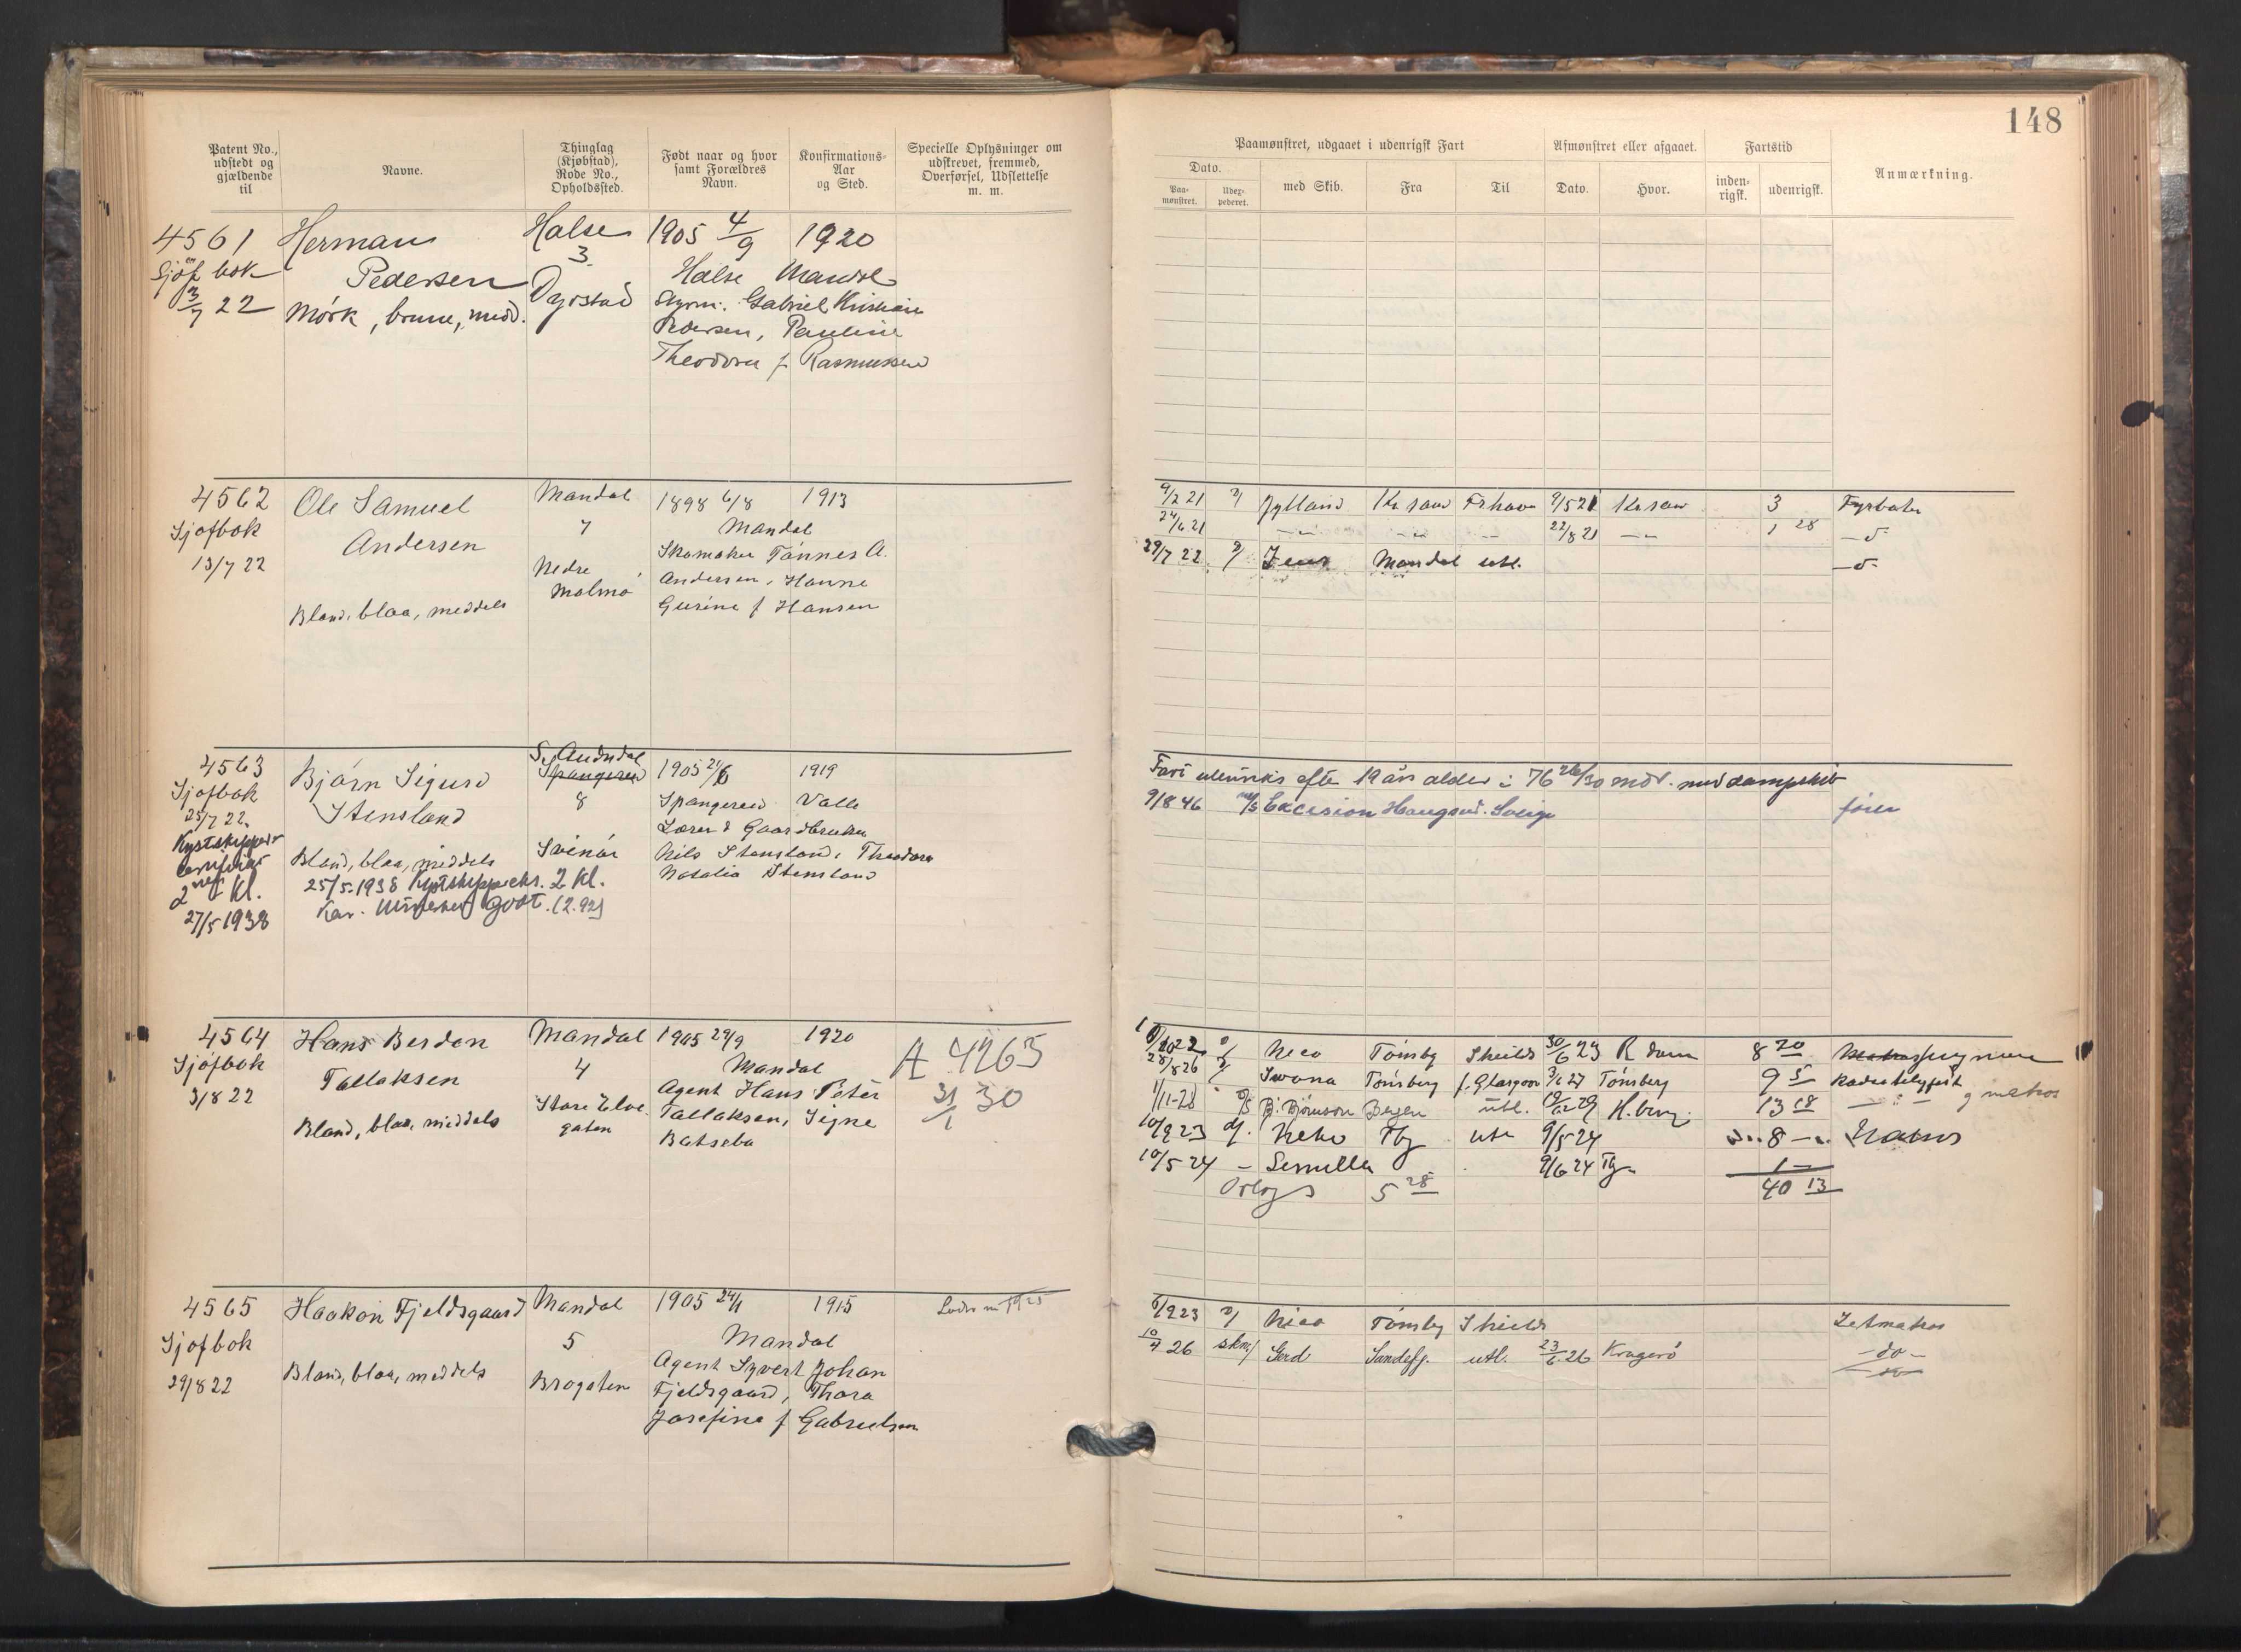 148
Patent No., udstedt og gjældende til
Navne.
Thinglag (Kjøbstad), Rode No., Opholdssted.
Født naar og hvor samt Forældres Navn.
Konfirmations-Aar og Sted.
Specielle Oplysninger om udskrevet, fremmed, Overførsel, Udslettelse m. m.
Paamønstret, udgaaet i udenrigsk Fart
Afmønstret eller afgaaet.
Fartstid
Anmærkning.
Dato.
Paa-mønstret.
Udex-pederet.
med Skib.
Fra
Til
Dato.
Hvor.
inden-rigsk.
udenrigsk.
4561 Herman Halse 1905 4/9 1920
Sjöf bok Pedersen 3 Halse Mandal
3/7 22 Mörk, brune, midd. Dyrstad Styrm. Gabriel Kristian
Pedersen, Pauline
Theodora f Rasmussen
4562 Ole Samuel Mandal 1898 6/8 1913
Sjöfbok Andersen 7 Mandal
13/7 22 Nedre Malmö Skomaker Tönnes A.
Andersen, Hanne
Bland, blaa, meddels Gurine f Hansen
9/2 21 Jylland Kr sand Frhavn 9/5 21 Kr sand 3 Fyrböter
24/6 21 -"- -"- -"- 22/8 21 -"- 1 28 -d-
29/7 22 Mandal utl. -d-
4563 Björn Sigurd S. Audndal Spangereid 1905 21/6 1919
Sjöfbok Stensland 8 Spangereid Valle
25/7 22. Lærer & Gaardbruker
Kystskipper Bland, blaa, middels Svinör Nils Stensland, Theodora
Natalia Stensland
2nen Kl. 25/5-1938 Kystskippereks. 2 Kl.
27/5 1938 Kar. Godt. (2.92)
Fart utenriks efter 19 års alder: 76 26/30 mdr. med dampskib
9/8 46 m/s Excision Haugesund. Sverige förer
4564 Hans Berdon Mandal 1905 29/9 1920 A 4263
Sjöfbok Tallaksen 4 Mandal 31/1 30
3/8 22 Store Elve gaten Agent Hans Peter
Bland, blaa, middels Tallaksen, Signe
Batseba
Nico Tönsbg Shields 30/6 23 R dam 8 20 jungmann
28/8 26 Iwona Tönsberg f. Glasgow 3/6 27 Tönsberg 9 5
1/11-28 B. Björnson Bergen utl. 19/12 29 H.berg. 13 18 -"- g matros
10/9 23 Tbg ute 9/5 24 8 -
10/5 24 9/6 24 Tbg. 1 -
Orlogs 5 28 40 13
4565 Haakon Fjeldsgaard Mandal 1905 24/1 1915
Sjöfbok 5 Mandal
29/8 22 Bland, blaa, meddels Brogaten Agent Syvert Johan
Fjeldsgaard, Thora
Josefine f Gabrielsen
6/9 23 Nico Tönsbg Shields Letmatros
10/4 26 Gerd Sandefj. utl. 23/6-26 Kragerö -do-